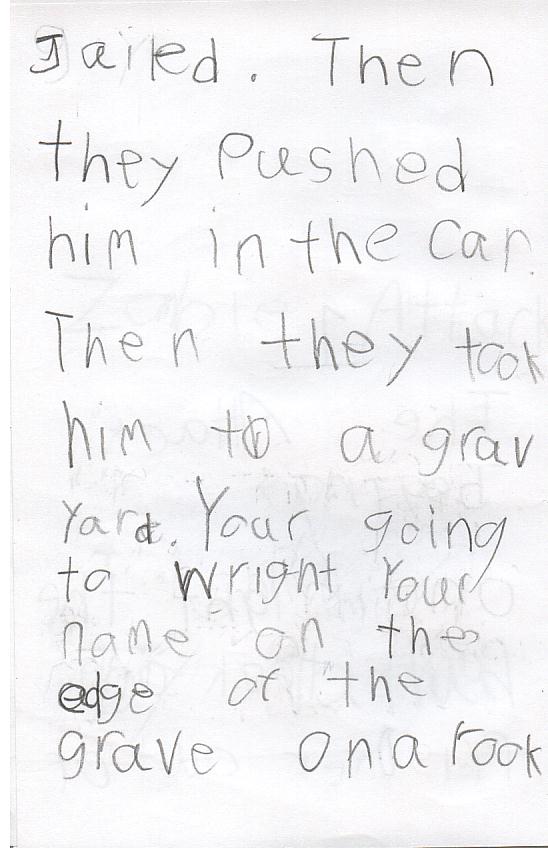 Jailed. Then
they Pushed
him in the car.
Then they took
him to a grav
yard. Your going
to wright Your
name on the
edge of the
grave on a rook